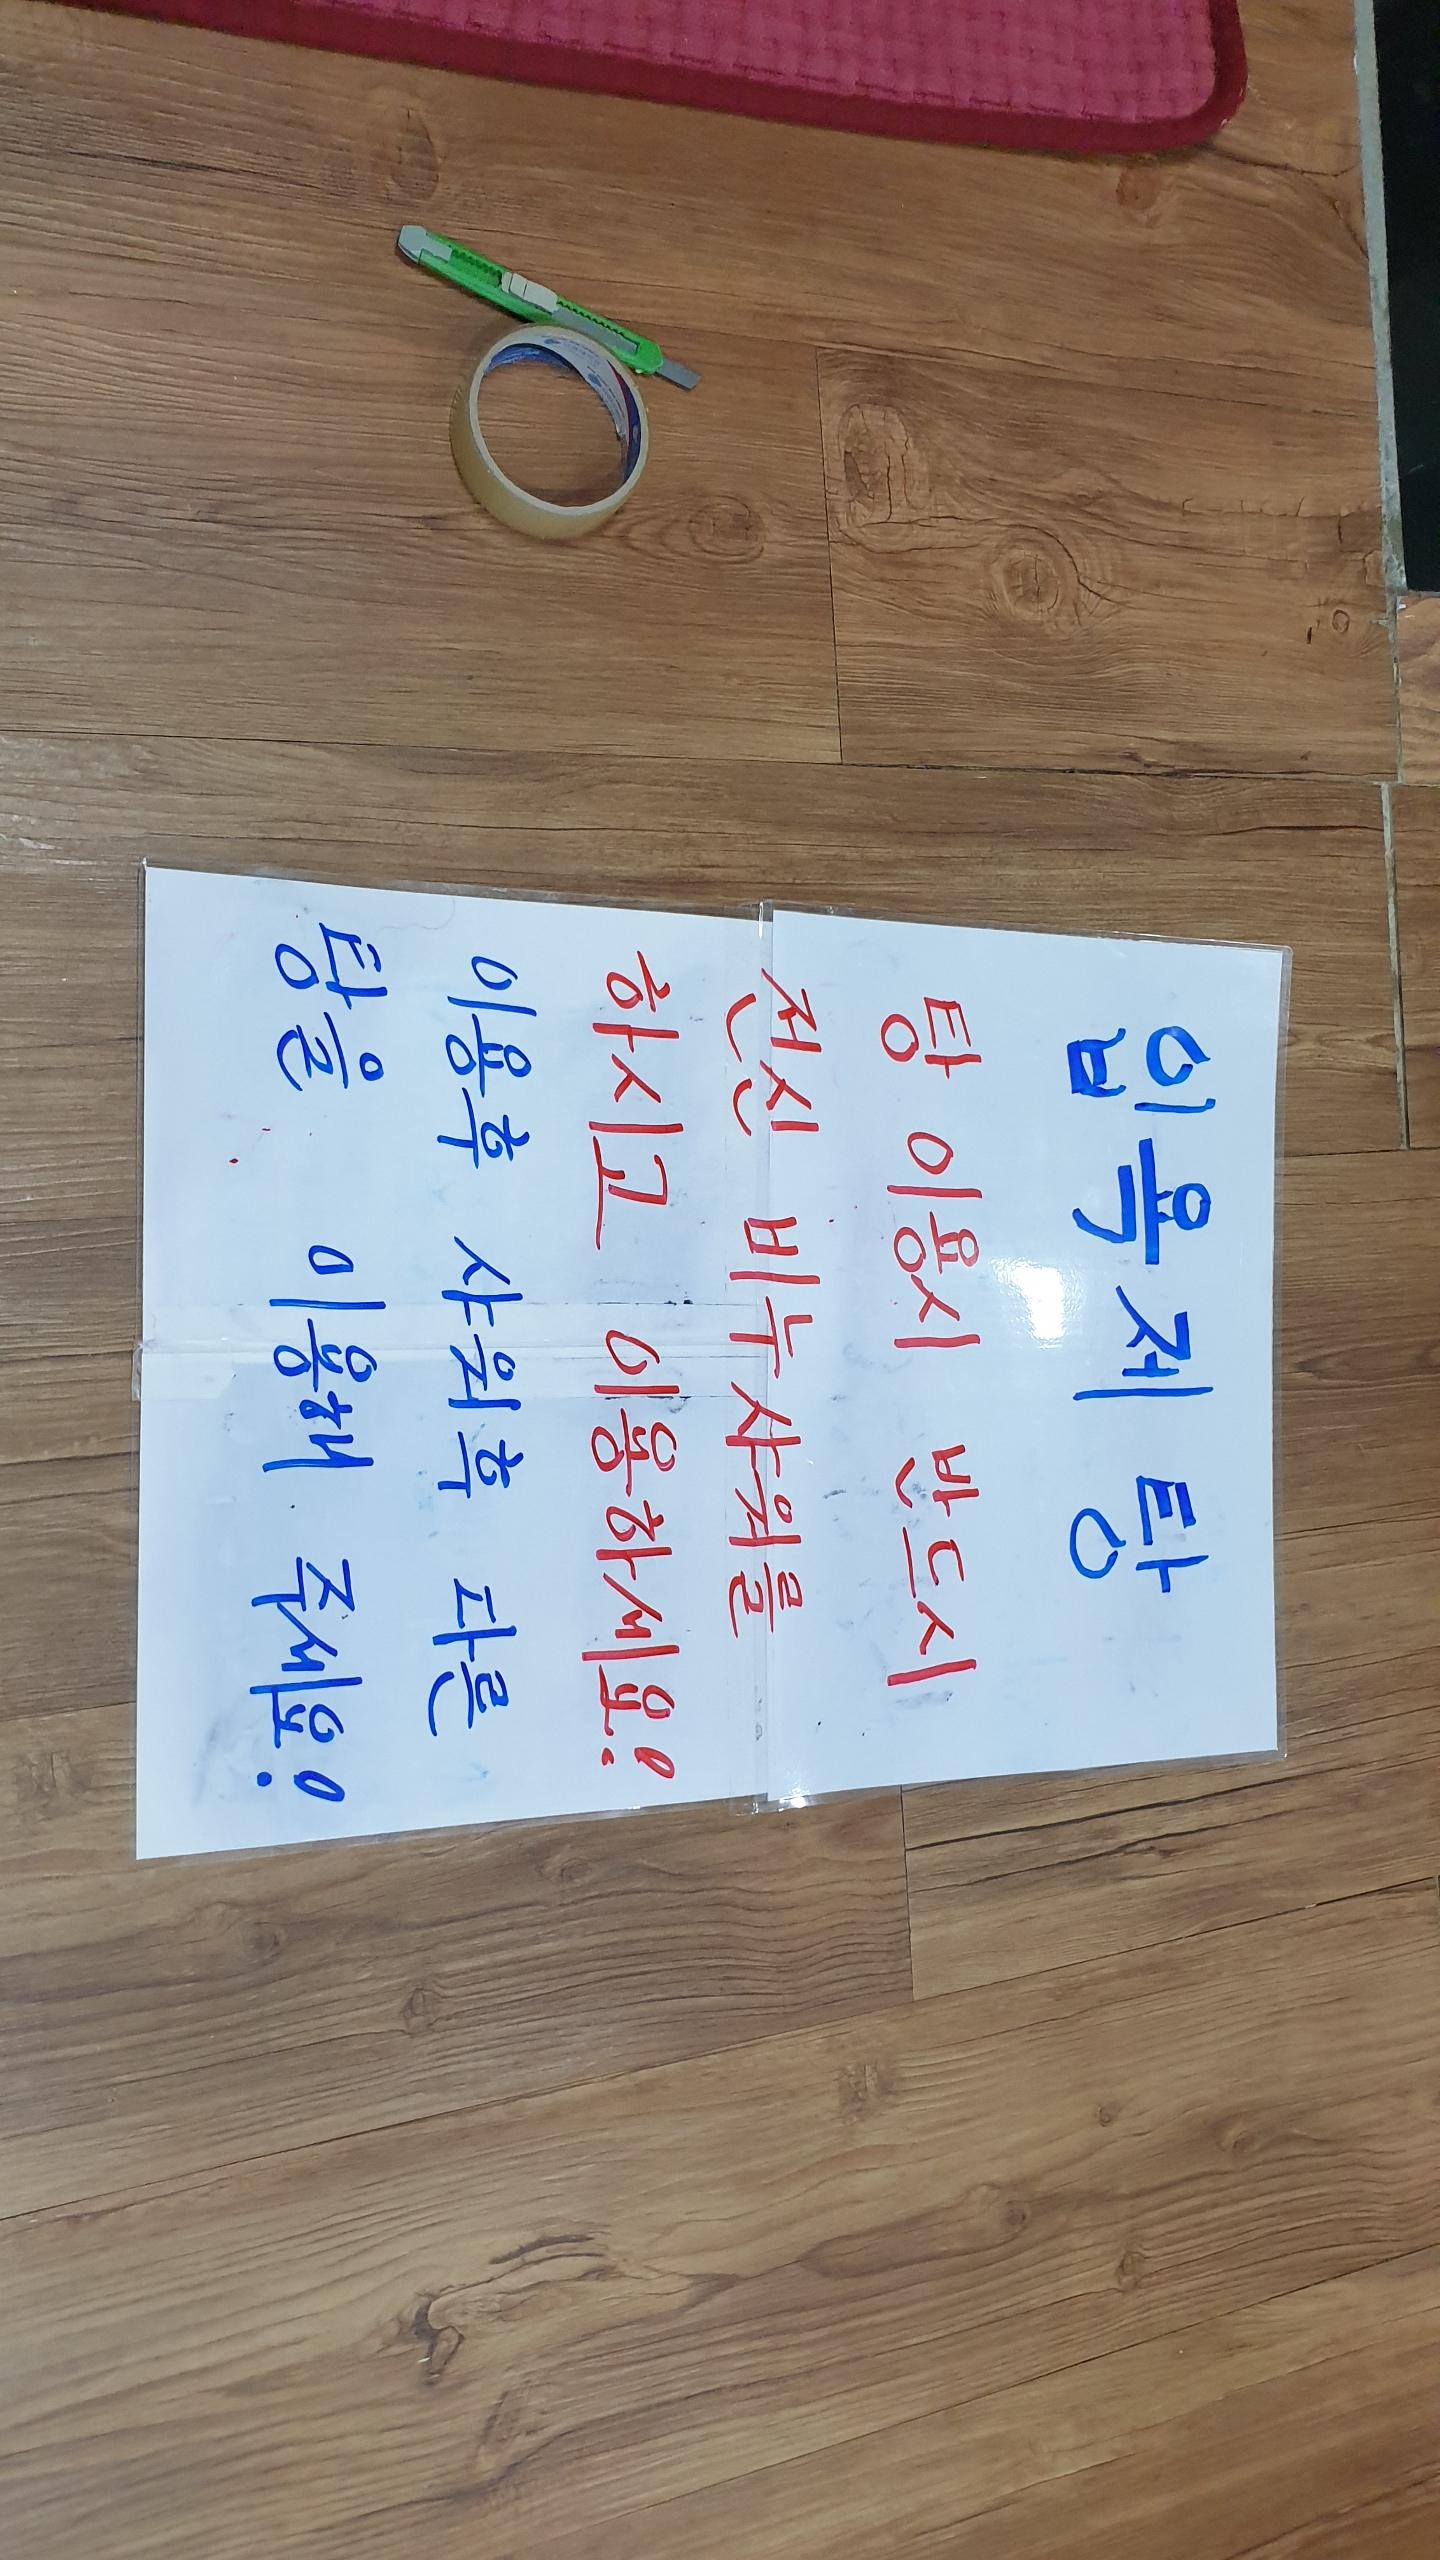 입욕제 탕
탕 이용시 반드시
전신 비누샤워를
하시고 이용하세요!
이용후 샤워후 다른
탕을 이용해 주세요!